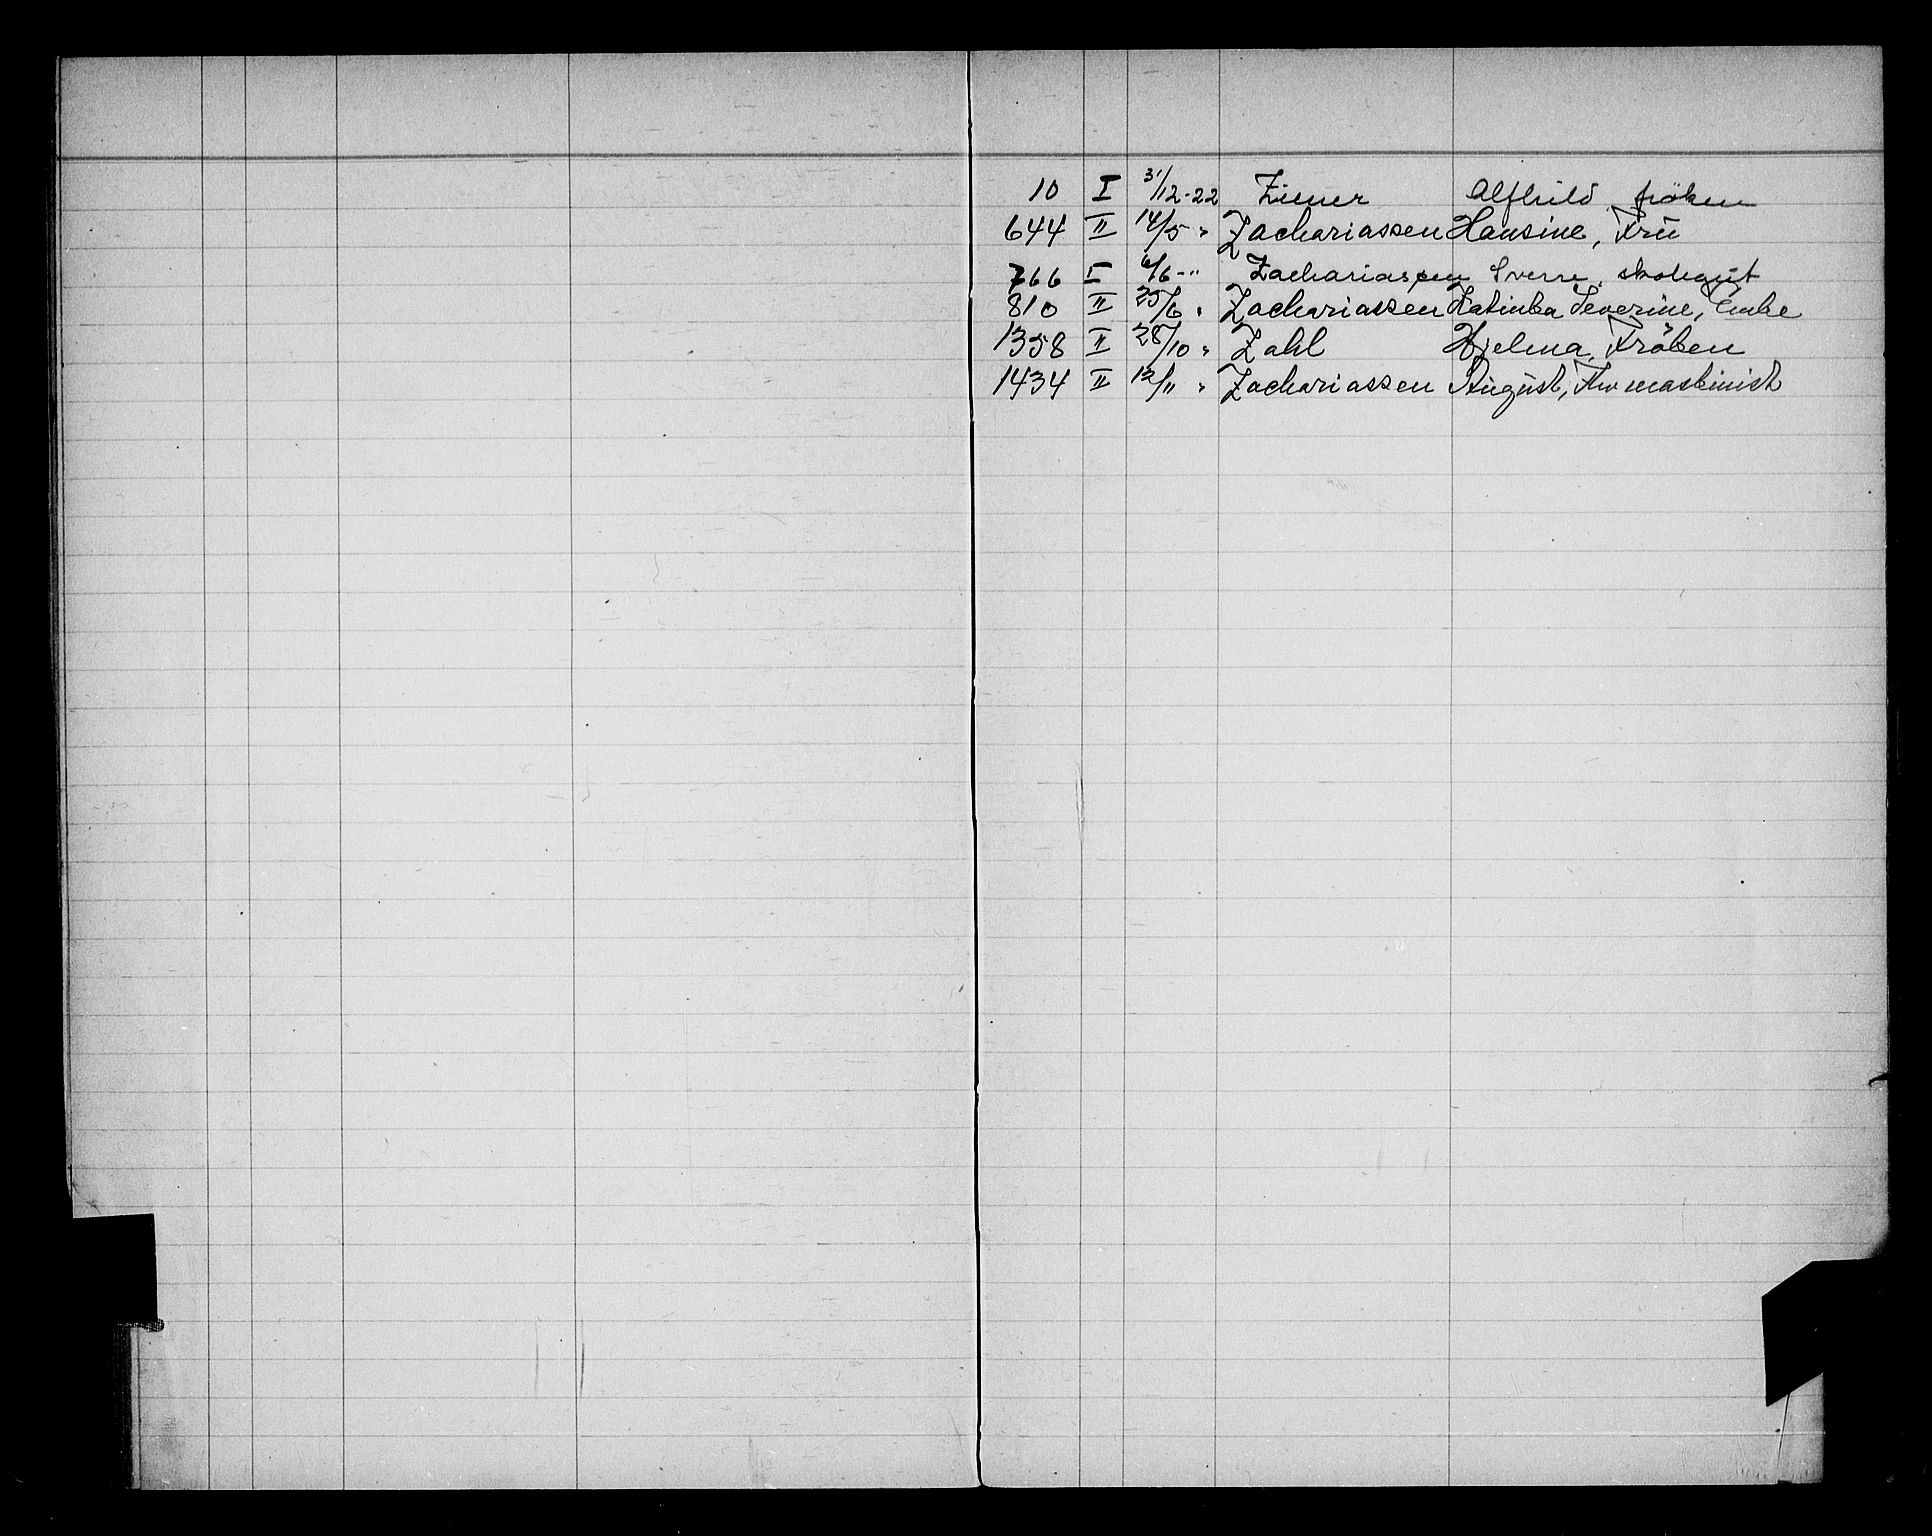 10 I 31/12-22 Ziener Alfhild, frøken
644 II 14/5 " Zachariassen Hansine, Frü
766 I 6/6 - " Zachariassen Sverre, skolegut
810 II 25/6 " Zachariassen Katinka Severine, Enke
1358 II 28/10 " Zahl Hjelma, Fröken
1434 II 12/11 " Zachariassen August, Fhv maskinist